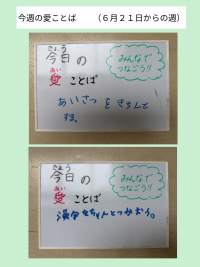 今週の愛ことば （６月２１日からの週）
きょう
今日の
あい
愛 ことば
みんなで
つなごう!!
あいさつをきちんと
する。
きょう
今日の
あい
愛 ことば
みんなで
つなごう!!
をちゃんとつかおう。